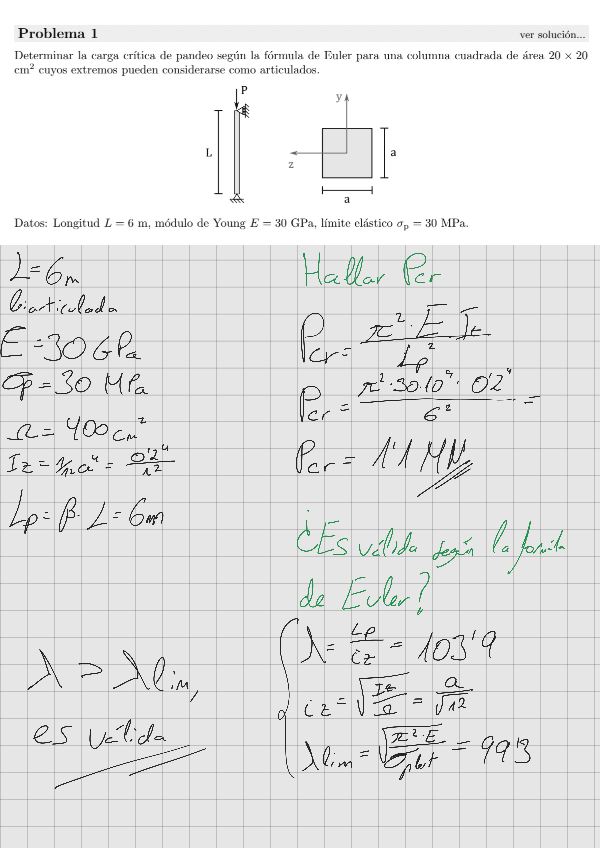 Problema 1
ver solución...
Determinar la carga crítica de pandeo según la fórmula de Euler para una columna cuadrada de área 20 × 20
cm² cuyos extremos pueden considerarse como articulados.
P
L
y
z
a
a
Datos: Longitud L = 6 m, módulo de Young E = 30 GPa, límite elástico σp = 30 MPa.
L = 6m
biarticulada
E = 30 GPa
σp = 30 MPa
Ω = 400 cm²
Iz = 1/12 a⁴ = 0'2⁴/12
Lp = β · L = 6m
λ > λlim,
es válida
Hallar Pcr
Pcr = π² · E Iz / Lp²
Pcr = π² · 30 · 10⁹ · 0'2⁴ / 6² =
Pcr = 1'1 MN
¿Es válida según la formula
de Euler?
λ = Lp / iz = 103'9
iz = √(Iz/Ω) = a/√12
λlim = √(π² · E / σplast) = 99'3